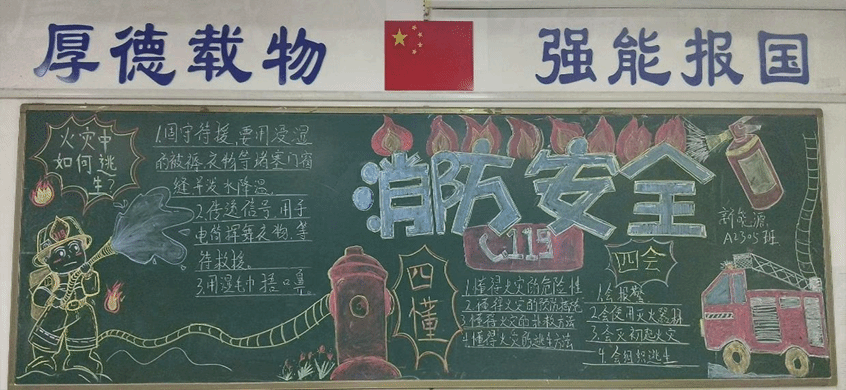 厚德载物
强能报国
火灾中
如何逃
生?
1.固守待援,要用浸湿
的被褥、衣物等堵塞门窗
缝早泼水降温
2.传送信号,用手
电筒挥舞衣物,等
待救援。
3.用湿毛巾捂口鼻。
消防安全
119
新能源
A2305班
四懂
1.懂得火灾的危险性
2.懂得火灾的预防措施
3.懂得火灾的扑救方法
4.懂得火灾的逃生方法
四会
1.会报警
2.会使用灭火器材
3.会灭初起火灾
4.会组织逃生